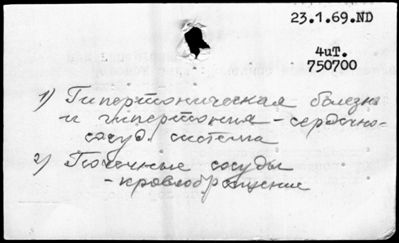 23.1.69.ND
4иТ.
750700
1) Гипертоническая болезнь
и гипертония - сердечно-
сосуд. система
2) Почечные сосуды
- кровообращение